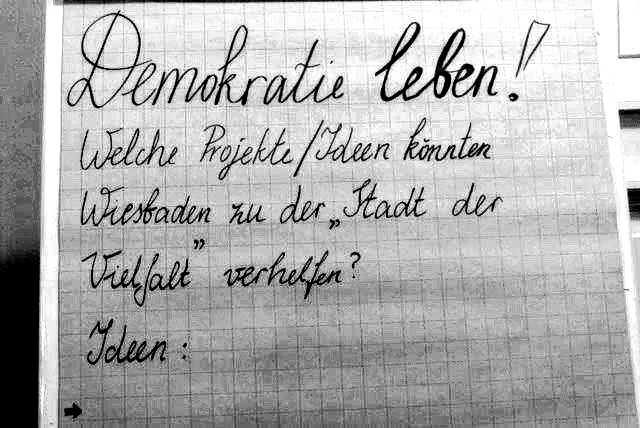 Demokratie leben!
Welche Projekte/Ideen könnten
Wiesbaden zu der „Stadt der
Vielfalt” verhelfen?
Ideen: